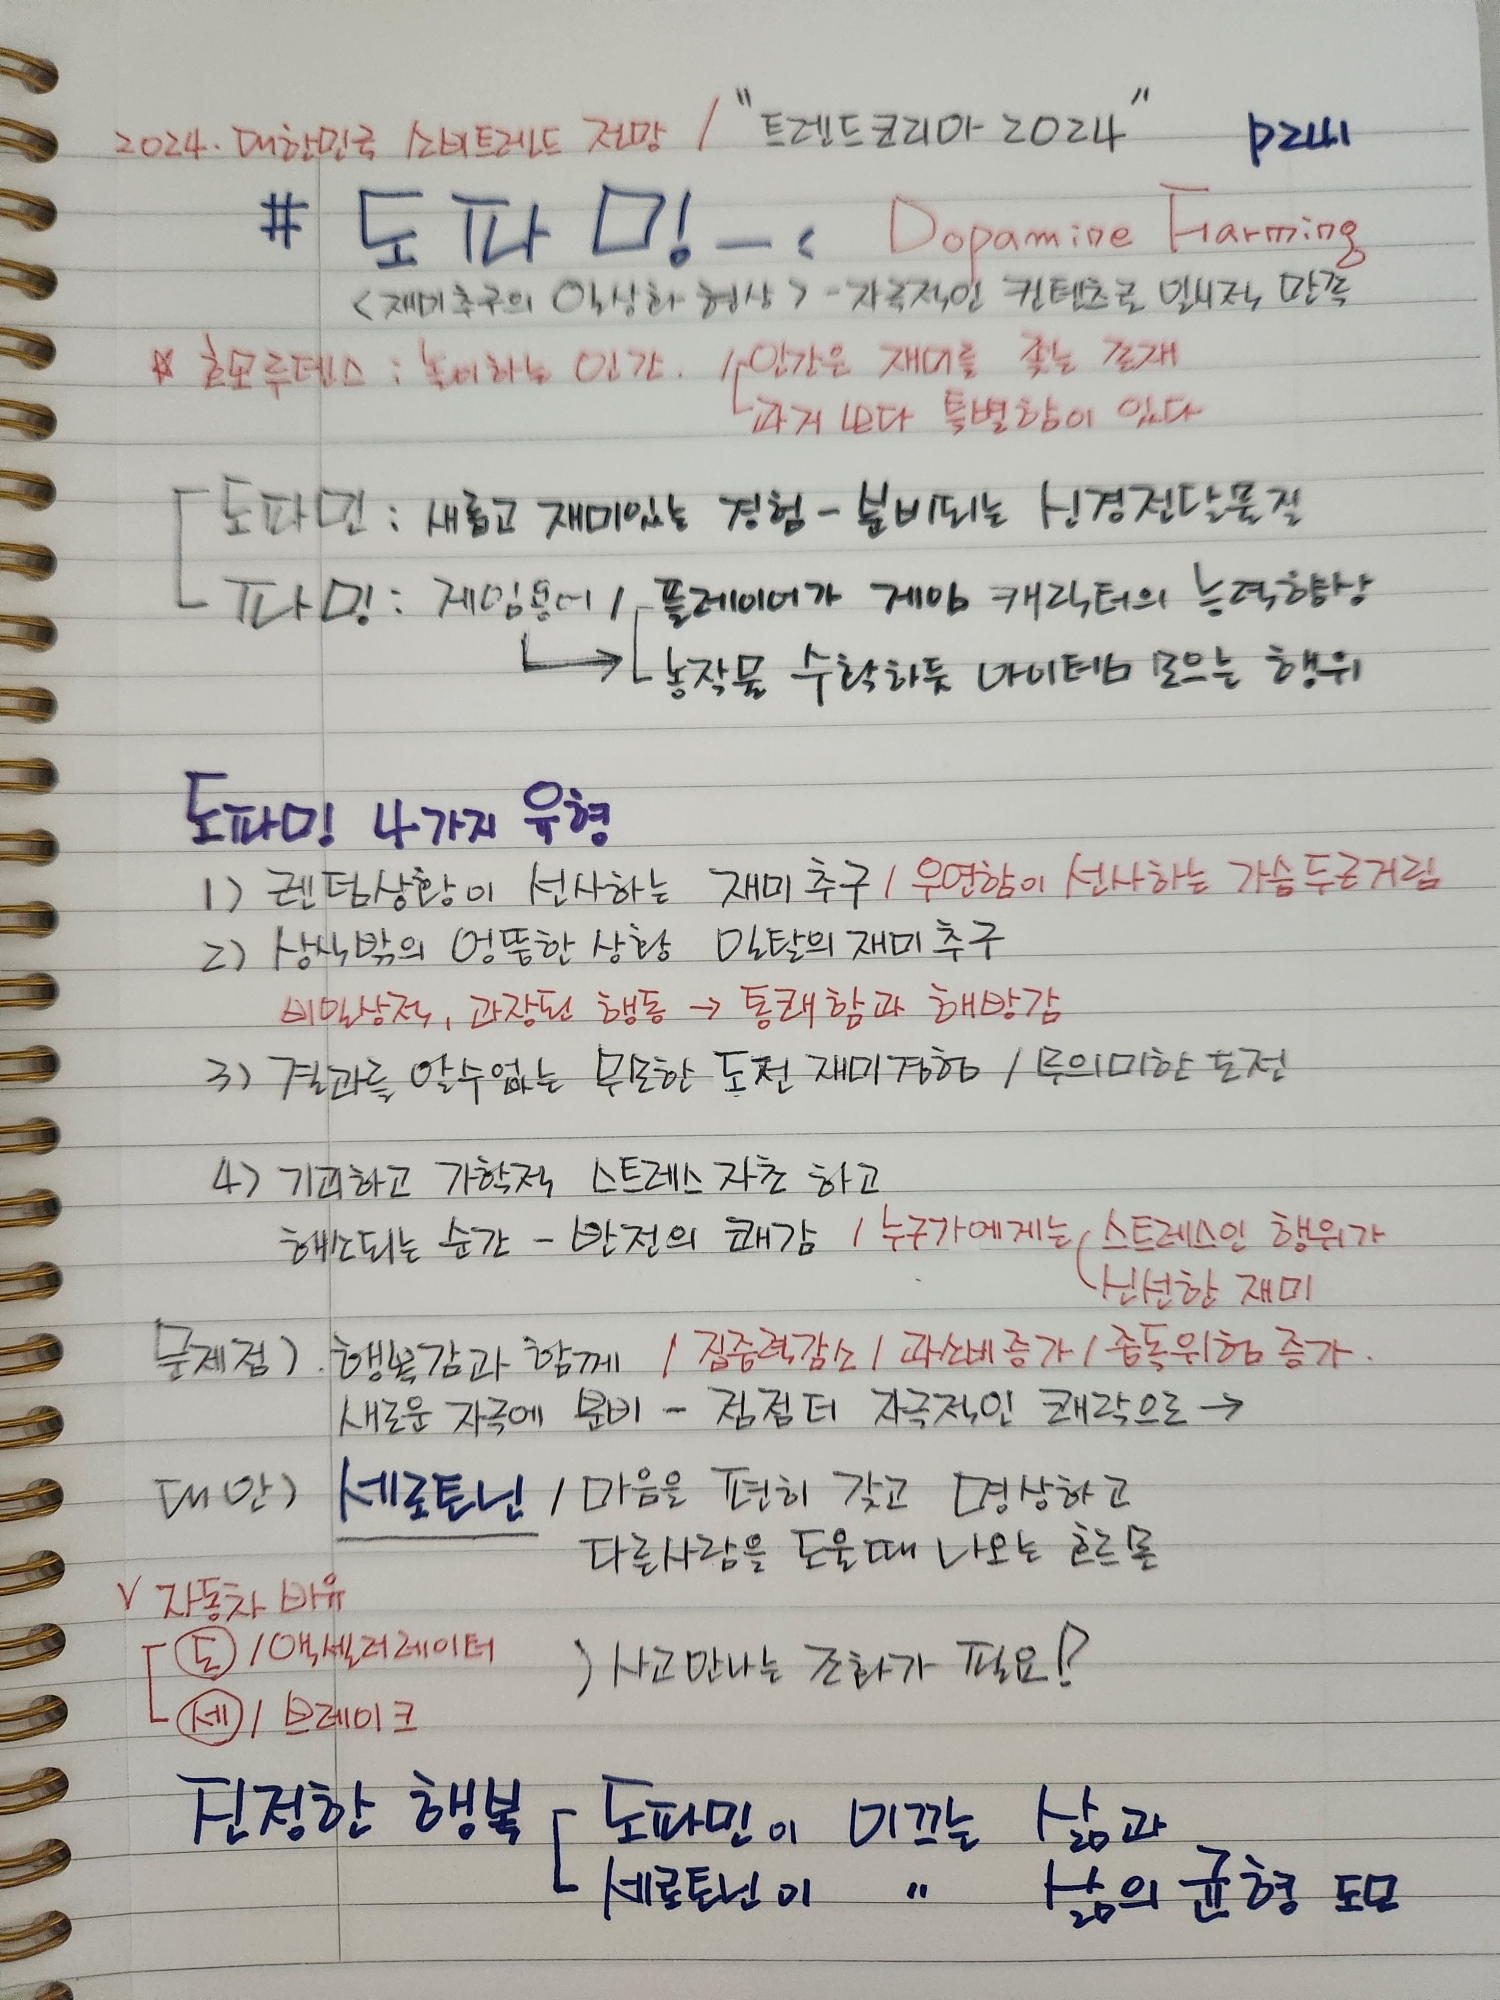 2024. 대한민국 소비트렌드 전망 / "트렌드코리아 2024" p241
# 도파밍 - < Dopamine Farming
<재미추구의 일상화 현상> - 자극적인 컨텐츠로 일시적 만족
☆ 호모루덴스 : 놀이하는 인간. / 인간은 재미를 좇는 존재
과거보다 특별함이 있다
도파민 : 새롭고 재미있는 경험 - 분비되는 신경전달물질
파밍 : 게임용어 / 플레이어가 게임 캐릭터의 능력향상
→ 농작물 수확하듯 아이템 모으는 행위
도파밍 4가지 유형
1) 렌덤상황이 선사하는 재미추구 / 우연함이 선사하는 가슴두근거림
2) 상식밖의 엉뚱한 상황 일탈의 재미추구
비일상적, 과장된 행동 → 통쾌함과 해방감
3) 결과를 알수없는 무모한 도전 재미경험 / 무의미한 도전
4) 기괴하고 가학적 스트레스 자초하고
해소되는 순간 - 반전의 쾌감 / 누구가에게는 스트레스인 행위가
신선한 재미
문제점) . 행복감과 함께 / 집중력감소 / 과소비증가 / 중독위험증가.
새로운 자극에 분비 - 점점더 자극적인 쾌락으로 →
대안) 세로토닌 / 마음을 편히 갖고 명상하고
다른사람을 도울때 나오는 호르몬
V 자동차 비유
도 / 액셀러레이터 ) 사고만나는 조화가 필요!?
세 / 브레이크
진정한 행복 도파민이 이끄는 삶과
세로토닌이 " 삶의 균형 도모